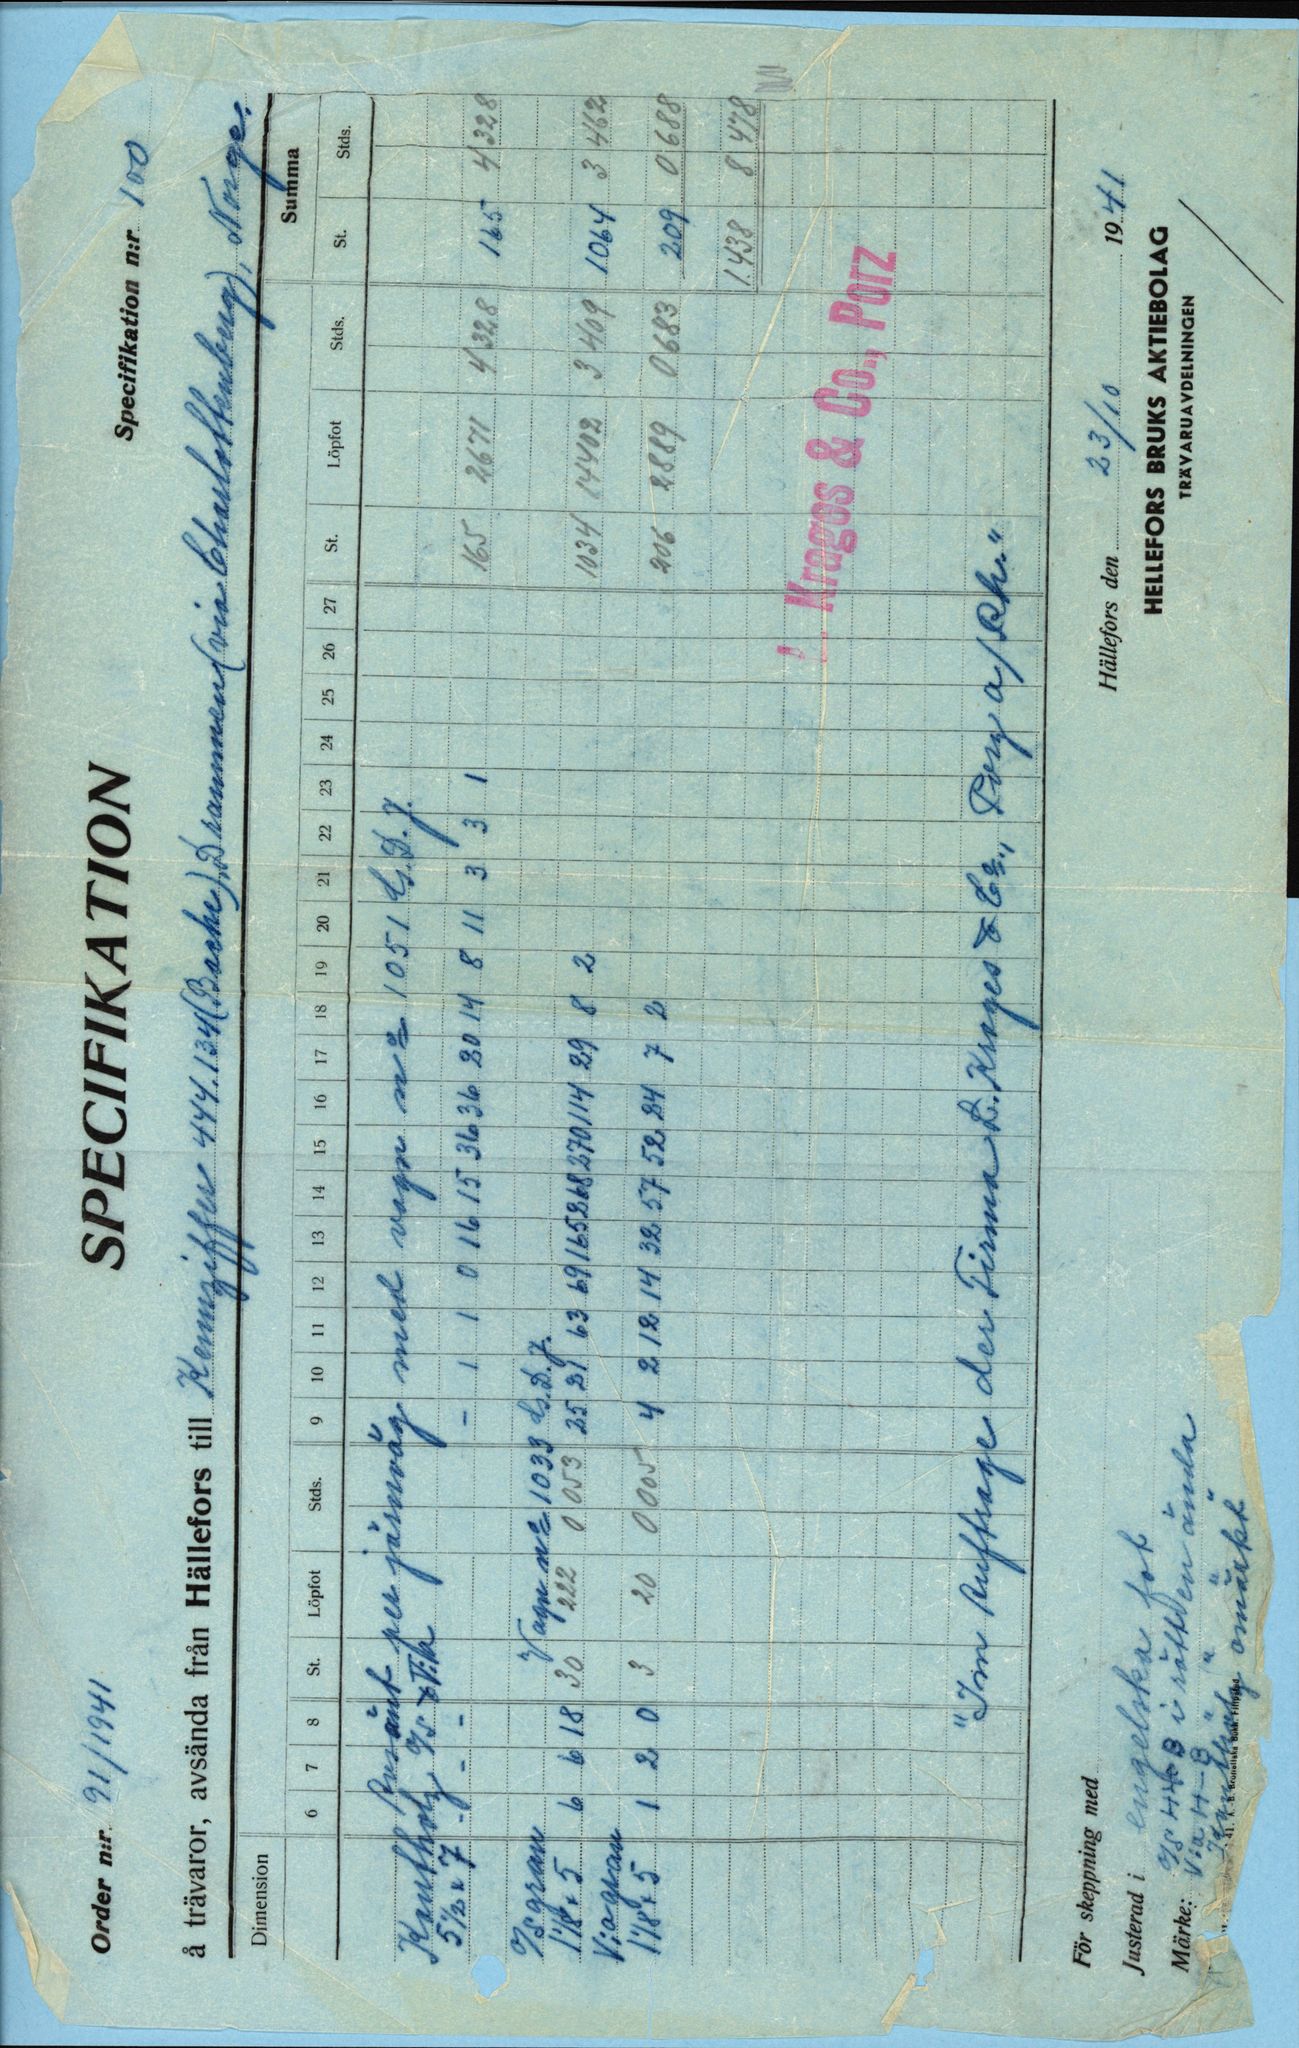 SPECIFIKATION
Order n:r 91/1941
Specifikation n:r 100
å trävaror, avsända från Hällefors till Kennziffer 444.134 (Bache), Drammen (via Charlottenberg), Norge.
Dimension 6 7 8 St. Löpfot Stds. 9 10 11 12 13 14 15 16 17 18 19 20 21 22 23 24 25 26 27 St. Löpfot Stds. Summa St. Stds.
per järnväg med vagn nr 1051 G.D.J.
Kantholz o/s
5 1/2 x 7 - - - - 1 1 0 16 15 36 36 20 14 8 11 3 3 1 165 2671 4 328 165 4 328
Vagn nr 1033 G.D.J.
o/s gran
1 1/8 x 5 6 6 18 30 222 0 053 25 21 63 69 165 268 270 114 29 8 2 1034 14402 3 409 1064 3 462
V:a gran
1 1/8 x 5 1 2 0 3 20 0 005 4 2 12 14 32 57 52 24 7 2 206 2889 0 683 209 0 688
1438 8 478
L. Krages & Co., Porz
"Im Auftrage der Firma L. Krages & Co., Porz a/Rh."
För skeppning med
Justerad i engelska fot
Märke: o/s H+B i rött en ända
V:a H-B " "
omärkt
Hällefors den 23/10 1941
HELLEFORS BRUKS AKTIEBOLAG
TRÄVARUAVDELNINGEN